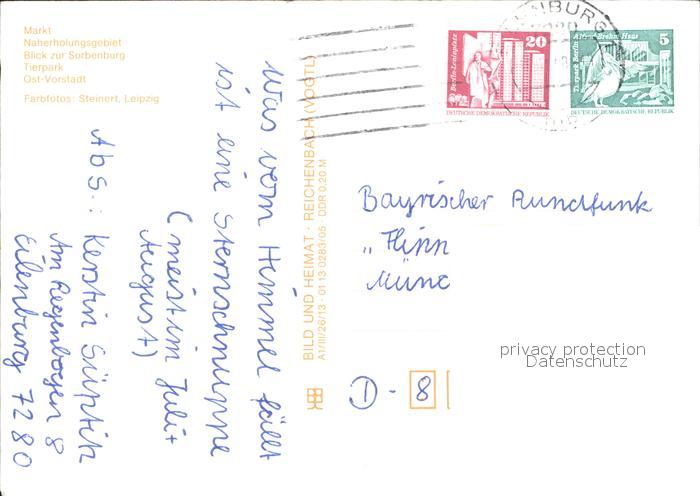 Markt
Naherholungsgebiet
Blick zur Sorbenburg
Tierpark
Ost-Vorstadt
Farbfotos: Steinert, Leipzig
Was vom Himmel fällt
ist eine Sternschnuppe
(meist im Juli +
August)
Abs.: Kerstin
Am Regenbogen 8
Eilenburg 7280
BILD UND HEIMAT · REICHENBACH (VOGTL)
A1/III/26/13 · 01 13 0283/05 DDR 0,20 M
Berlin-Leninplatz
20
DEUTSCHE DEMOKRATISCHE REPUBLIK
Alfred-Brehm-Haus
Tierpark Berlin
5
DEUTSCHE DEMOKRATISCHE REPUBLIK
Bayrischer Rundfunk
„ Hinn
Münc
privacy protection
Datenschutz
① - 8